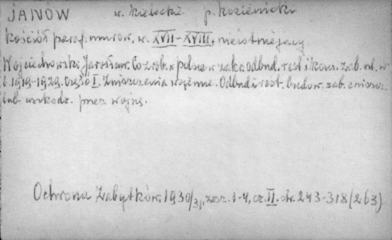 JANÓW w. kielecki p. kozienicki
Kościół paraf. murow. w. XVII-XVIII, nieistniejący
Wojciechowski Jarosław. Co zrob. w polsce w zakr. odbud. rest. i kons. zab. od. w.
1919-1929. Część I. Zniszczenia wojenne. Odbud. i rest. budow. zab. zniszcz.
lub uszkodz. przez wojnę.
Ochrona Zabytków. 1930/31, zesz. 1-4, cz. II. str. 243-318 (263)